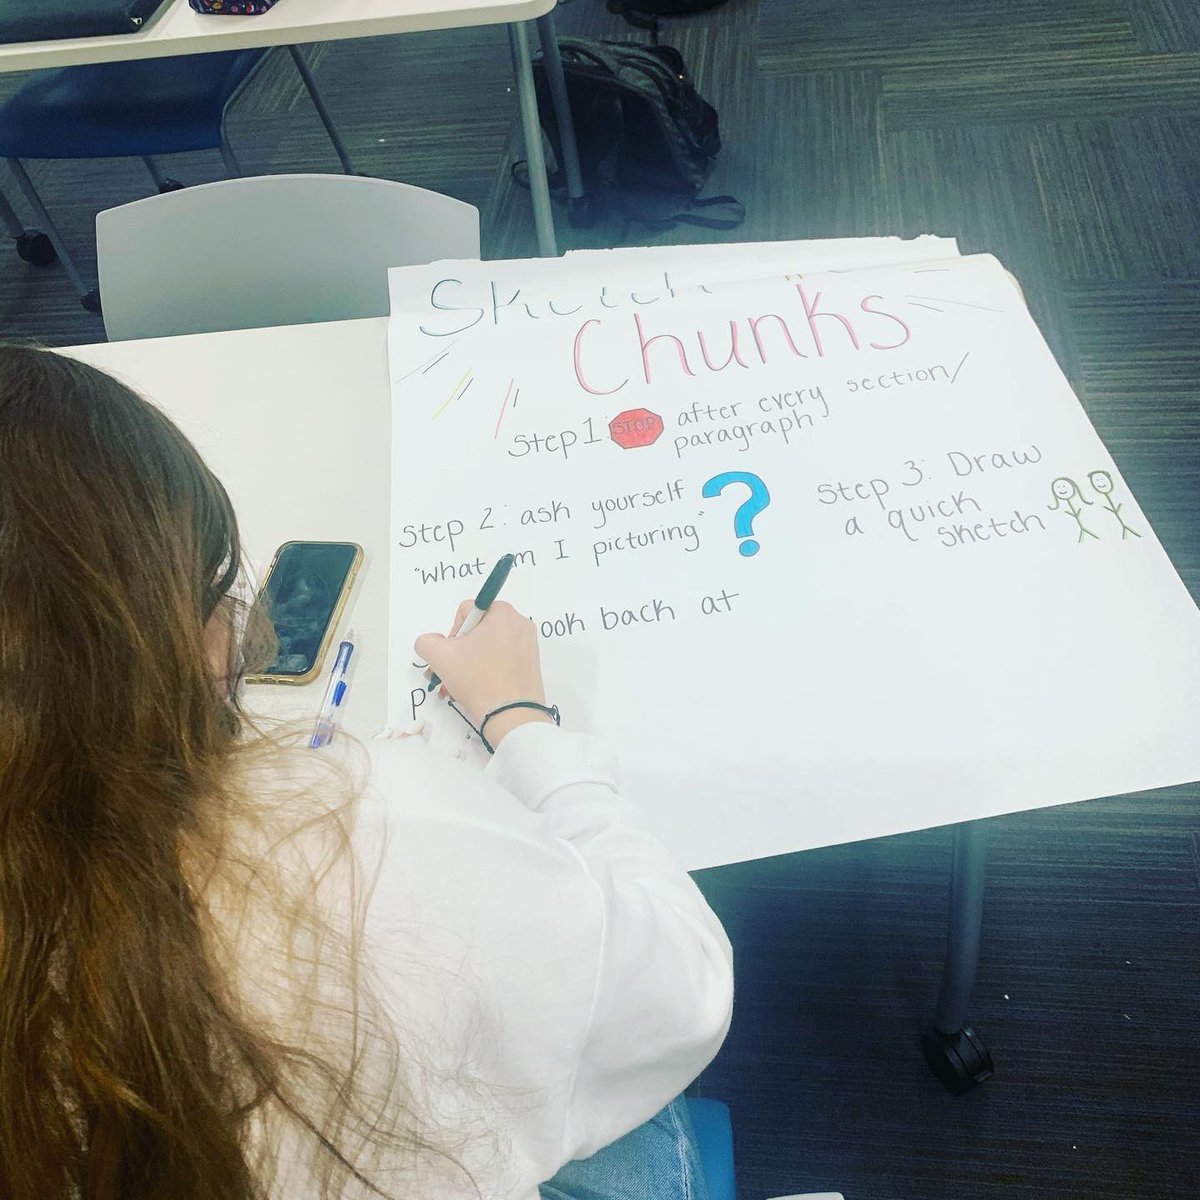 Sketch the
Chunks
Step 1: STOP after every section/
paragraph
Step 2: ask yourself
"what am I picturing"?
Step 3: Draw
a quick
sketch
look back at
p